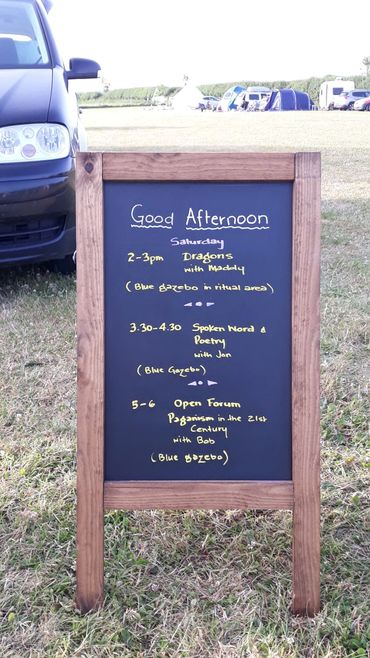 Good Afternoon
Saturday
2-3pm Dragons
with Maddy
(Blue gazebo in ritual area)
3.30-4.30 Spoken Word &
Poetry
with Jan
(Blue Gazebo)
5-6 Open Forum
Paganism in the 21st
Century
with Bob
(Blue gazebo)